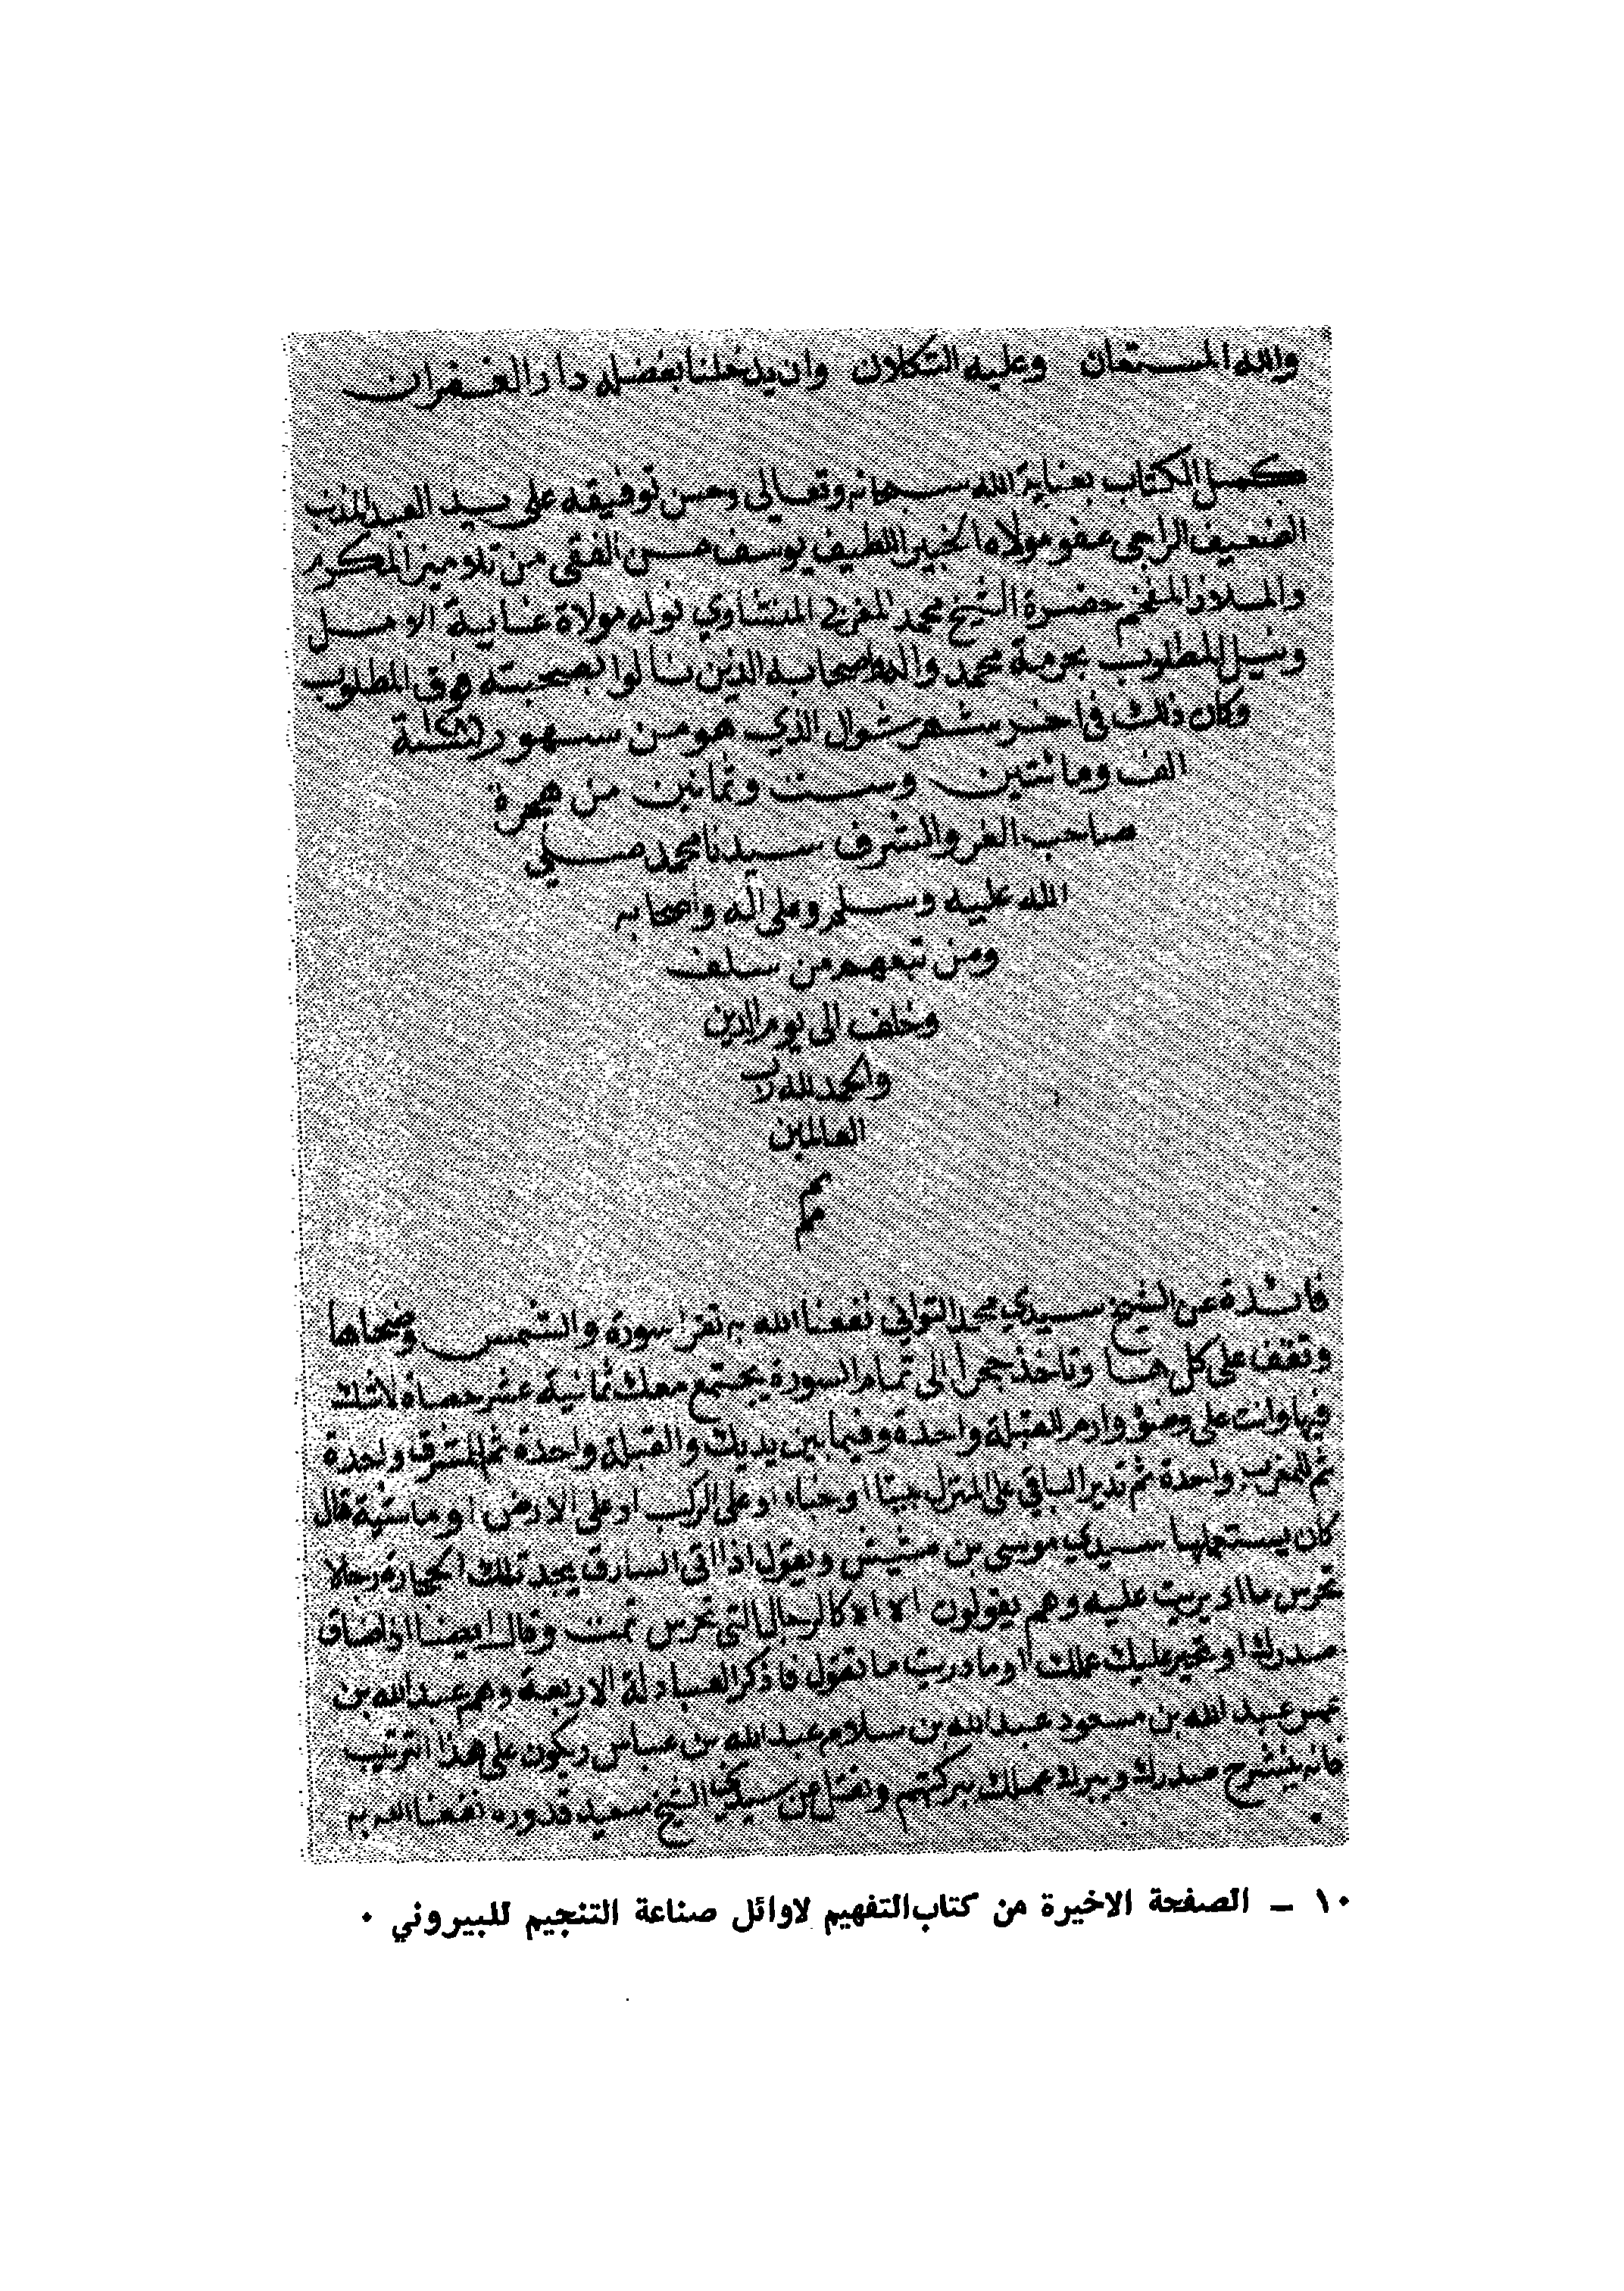 والله المستعان وعليه التكلان وان يدخلنا بفضله دار الغفران
كمل الكتاب بعناية الله سبحانه وتعالى وحسن توفيقه على يد العبد المذنب
الضعيف الراجي عفو مولاه الخبير اللطيف يوسف حسن الفقى من تلاميذ المكرم
والملاذ المفخم حضرة الشيخ محمد المغربي المنشاوي نوله مولاة غاية الامل
ونيل المطلوب بحرمة محمد واله واصحابه الذين نالوا بصحبته فوق المطلوب
وكان ذلك في اخر شهر شوال الذي هو من شهور
الف ومائتين وست وثمانين من هجرة
صاحب العز والشرف سيدنا محمد صلي
الله عليه وسلم وعلى اله واصحابه
ومن تبعهم من سلف
وخلف الى يوم الدين
والحمد لله رب
العالمين
فائدة عن الشيخ سيدي محمد التواتي نفعنا الله به تقرا سورة والشمس وضحاها
وتقف على كل ها وتاخذ حجرا الى تمام السورة يجتمع معك ثمانية عشر حصاة لاشك
فيها وانت على وضؤ وارم القبلة واحدة وفيما بين يديك والقبلة واحدة ثم المشرق واحدة
ثم المغرب واحدة ثم تدير الباقي على المنزل بيتا او خباء او على الركب او على الارض او ماشية قال
كان يستعملها سيدي موسى بن مشيش ويقول اذا اتى السارق يجد تلك الحجارة رجالا
تحرس ما ادريت عليه وهم يقولون الا الا كالرجال التي تحرس تمت وقال ايضا اذا ضاق
صدرك او تحير عليك عملك او ما دريت ما تقول فاذكر العبادلة الاربعة وهم عبد الله بن
عمر عبد الله بن مسعود عبد الله بن سلام عبد الله بن عباس ويكون على هذا الترتيب
فانه ينشرح صدرك ويبرك عملك ببركتهم ونقل عن الشيخ سعيد قدوره نفعنا الله به
١٠ ـ الصفحة الاخيرة من كتاب التفهيم لاوائل صناعة التنجيم للبيروني ٠